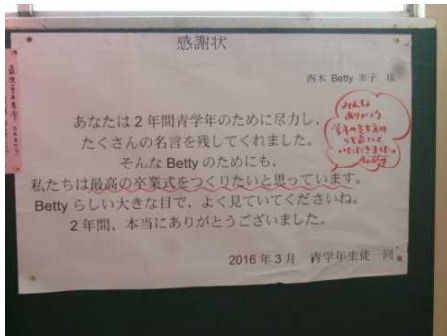 感謝状
西木 Betty 幸子 様
あなたは2年間青学年のために尽力し、
たくさんの名言を残してくれました。
そんな Betty のためにも、
私たちは最高の卒業式をつくりたいと思っています。
Betty らしい大きな目で、よく見ていてくださいね。
2年間、本当にありがとうございました。
2016年3月 青学年生徒一同
みんな
ありがとう